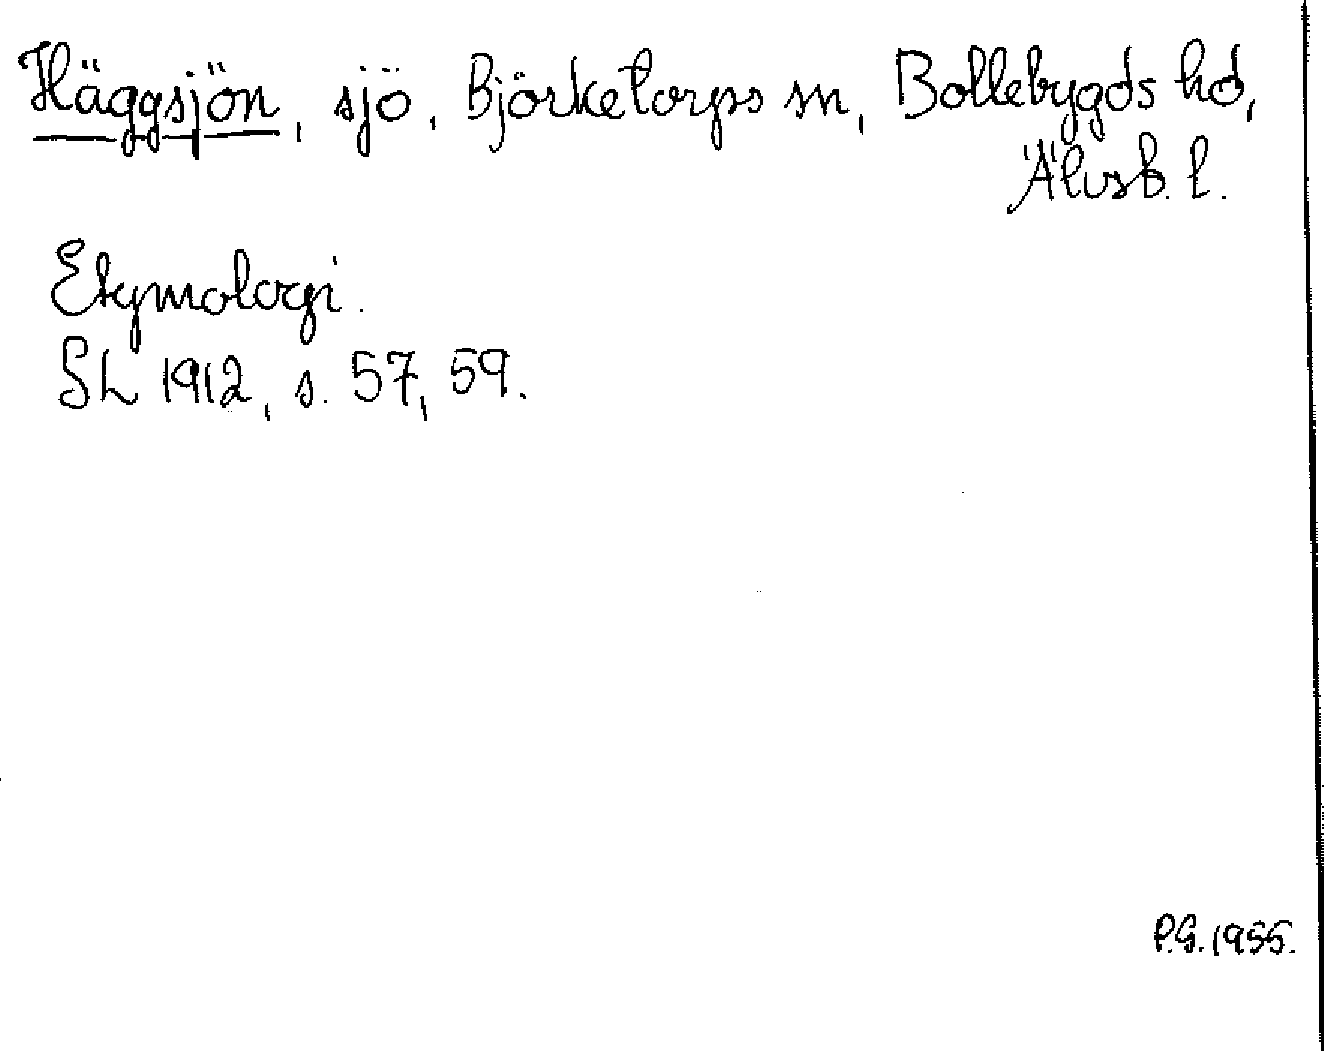 Häggsjön, sjö, Björketorps sn, Bollebygds hd,
Älvsb. l.
Etymologi.
SL 1912, s. 57, 59.
P.G. 1955.